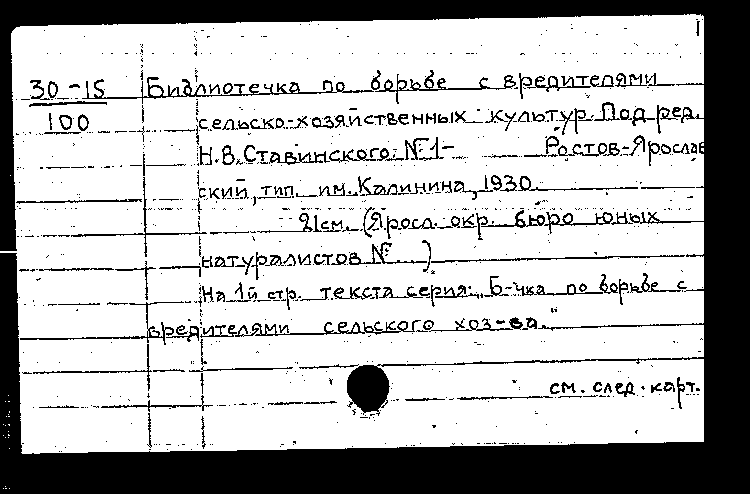 30-15 Библиотечка по борьбе с вредителями
100 сельско-хозяйственных культур. Под ред.
Н.В.Ставинского. №1- Ростов-Ярослав
ский, тип. им. Калинина, 1930.
21см. (Яросл. окр. бюро юных
натуралистов № )
На 1й стр. текста серия: „Б-чка по борьбе с
вредителями сельского хоз-ва."
см. след. карт.